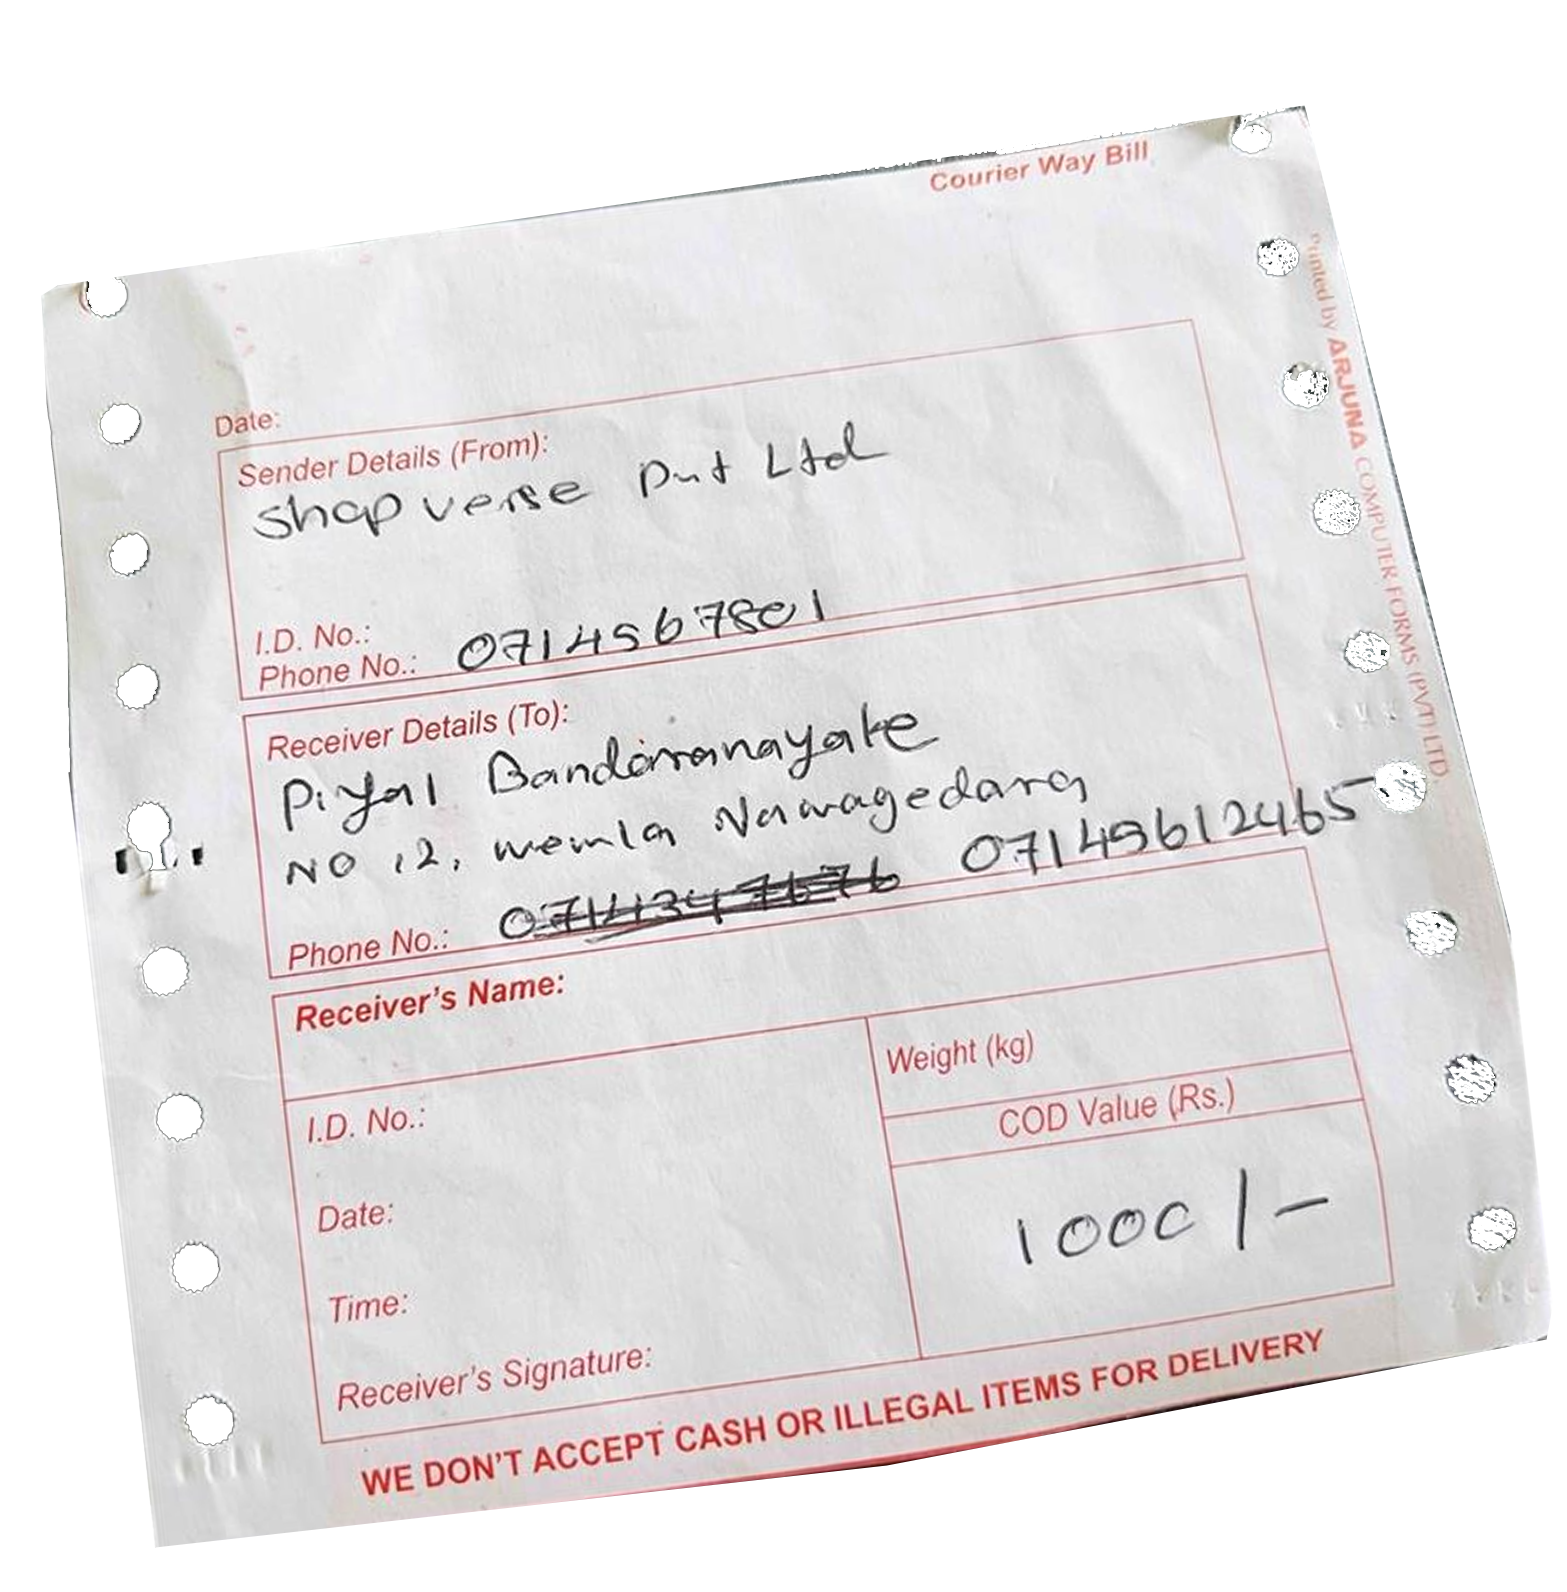 Courier Way Bill
Printed by ARJUNA COMPUTER FORMS (PVT) LTD
Date:
Sender Details (From):
Shop verse Pvt Ltd
I.D. No.:
Phone No.: 0714567801
Receiver Details (To):
Piyal Bandaranayake
NO 12, Nawagedara
07149612465
Phone No.:
Receiver's Name:
I.D. No.:
Date:
Time:
Receiver's Signature:
Weight (kg)
COD Value (Rs.)
1000/-
WE DON'T ACCEPT CASH OR ILLEGAL ITEMS FOR DELIVERY